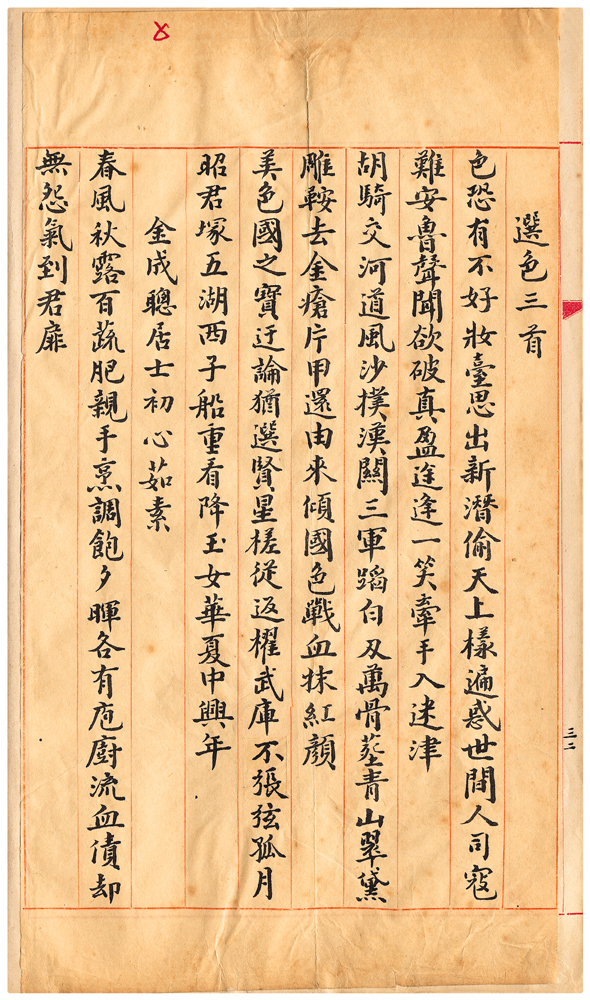 選色三首
色恐有不好妝臺思出新潛偷天上樣遍惑世間人司寇
難安魯聲聞欲破真盈途逢一笑牽手入迷津
胡騎交河道風沙撲漢關三軍蹈白刃萬骨葬青山翠黛
雕鞍去金瘡片甲還由來傾國色戰血抹紅顏
美色國之寶迂論猶選賢星槎從返櫂武庫不張弦孤月
昭君塚五湖西子船重看降玉女華夏中興年
金成聰居士初心茹素
春風秋露百蔬肥親手烹調飽夕暉各有庖廚流血債却
無怨氣到君扉
三二